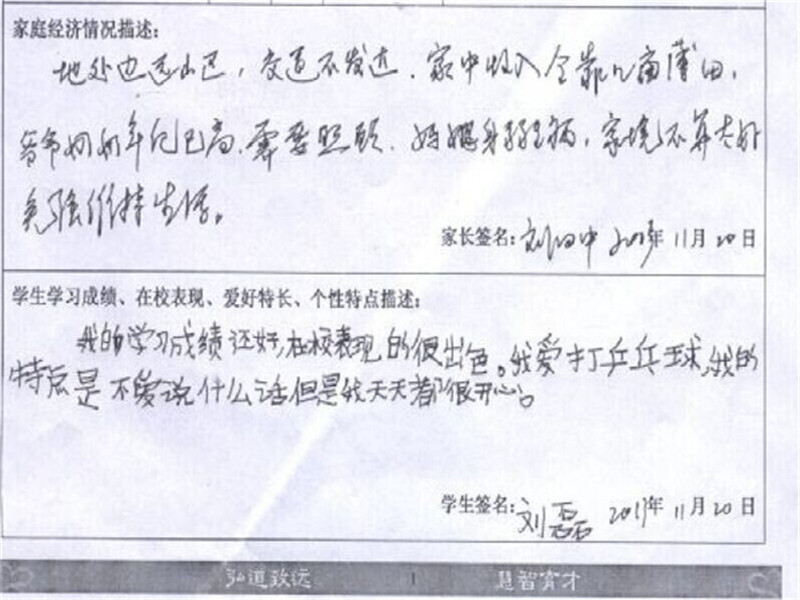 家庭经济情况描述:
地处边远山区,交通不发达.家中收入全靠几亩薄田,
爷爷奶奶年纪已高.需要照顾.妈妈身 ,家境不算太好
勉强维持生活。
家长签名: 刘 中 11月20日
学生学习成绩、在校表现、爱好特长、个性特点描述:
我的学习成绩还好,在校表现的很出色。我爱打乒乓球,我的
特点是不爱说什么话但是我天天都很开心。
学生签名: 刘磊 2011年11月20日
弘道致远 1 慧智育才